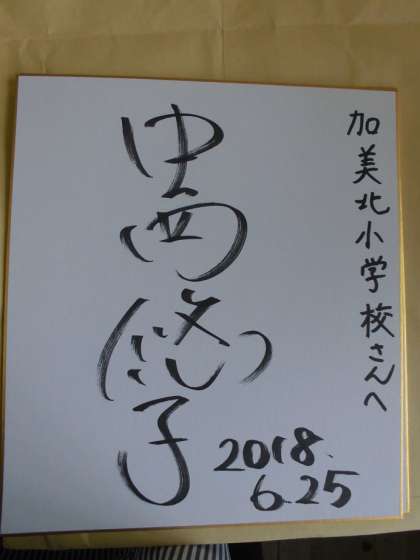 加美北小学校さんへ
中西悠子
2018.
6.25